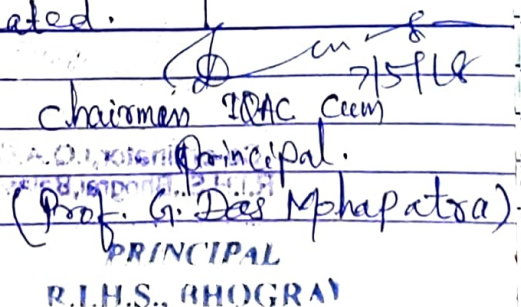 ated.
7/5/18
Chairman IQAC Cum
Principal.
(Prof. G. Das Mohapatra)
PRINCIPAL
R.I.H.S., BHOGRAI